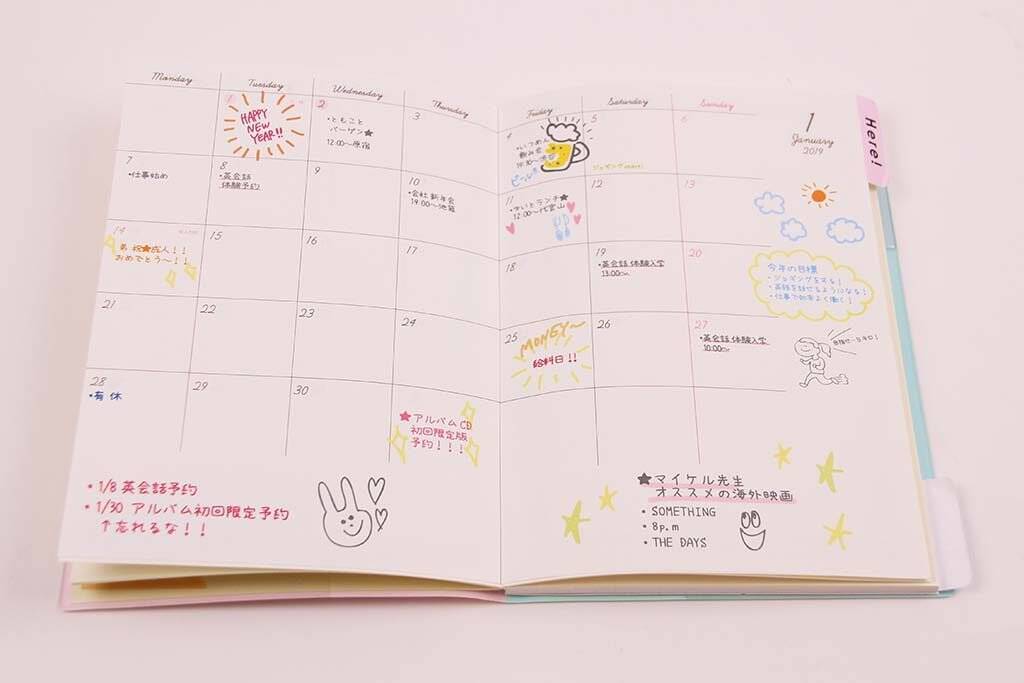 Monday
Tuesday
Wednesday
Thursday
Friday
Saturday
Sunday
1
January
2019
Here!
1
HAPPY
NEW
YEAR!!
2
・ともこと
バーゲン★
12:00〜原宿
3
4
飲み会
ビール
5
6
7
・仕事始め
8
・英会話
体験予約
9
10
・会社新年会
19:00〜池袋
11
ランチ★
12:00〜代官山
12
13
14
成人!!
おめでとう〜!!
15
16
17
18
19
・英会話 体験入学
13:00〜
20
今年の目標
・ジョギングをする!
・英語を話せるようになる!
・仕事で効率よく働く!
21
22
23
24
25
MONEY〜
給料日!!
26
27
・英会話 体験入学
10:00〜
28
・有休
29
30
★アルバムCD
初回限定版
予約!!!
・1/8 英会話予約
・1/30 アルバム初回限定予約
↑忘れるな!!
★マイケル先生
オススメの海外映画
・SOMETHING
・8p.m
・THE DAYS